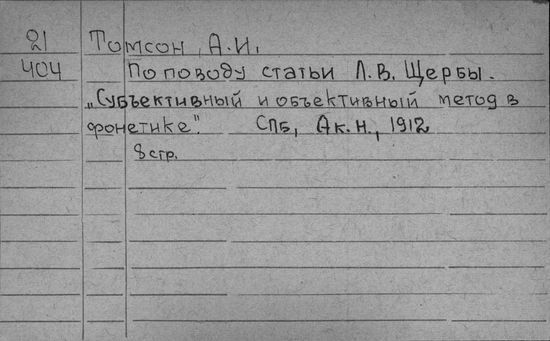 21 Томсон, А.И.
404 По поводу статьи Л.В. Щербы.
„Субъективный и объективный метод в
фонетике". СПб, Ак. Н., 1912
8 стр.